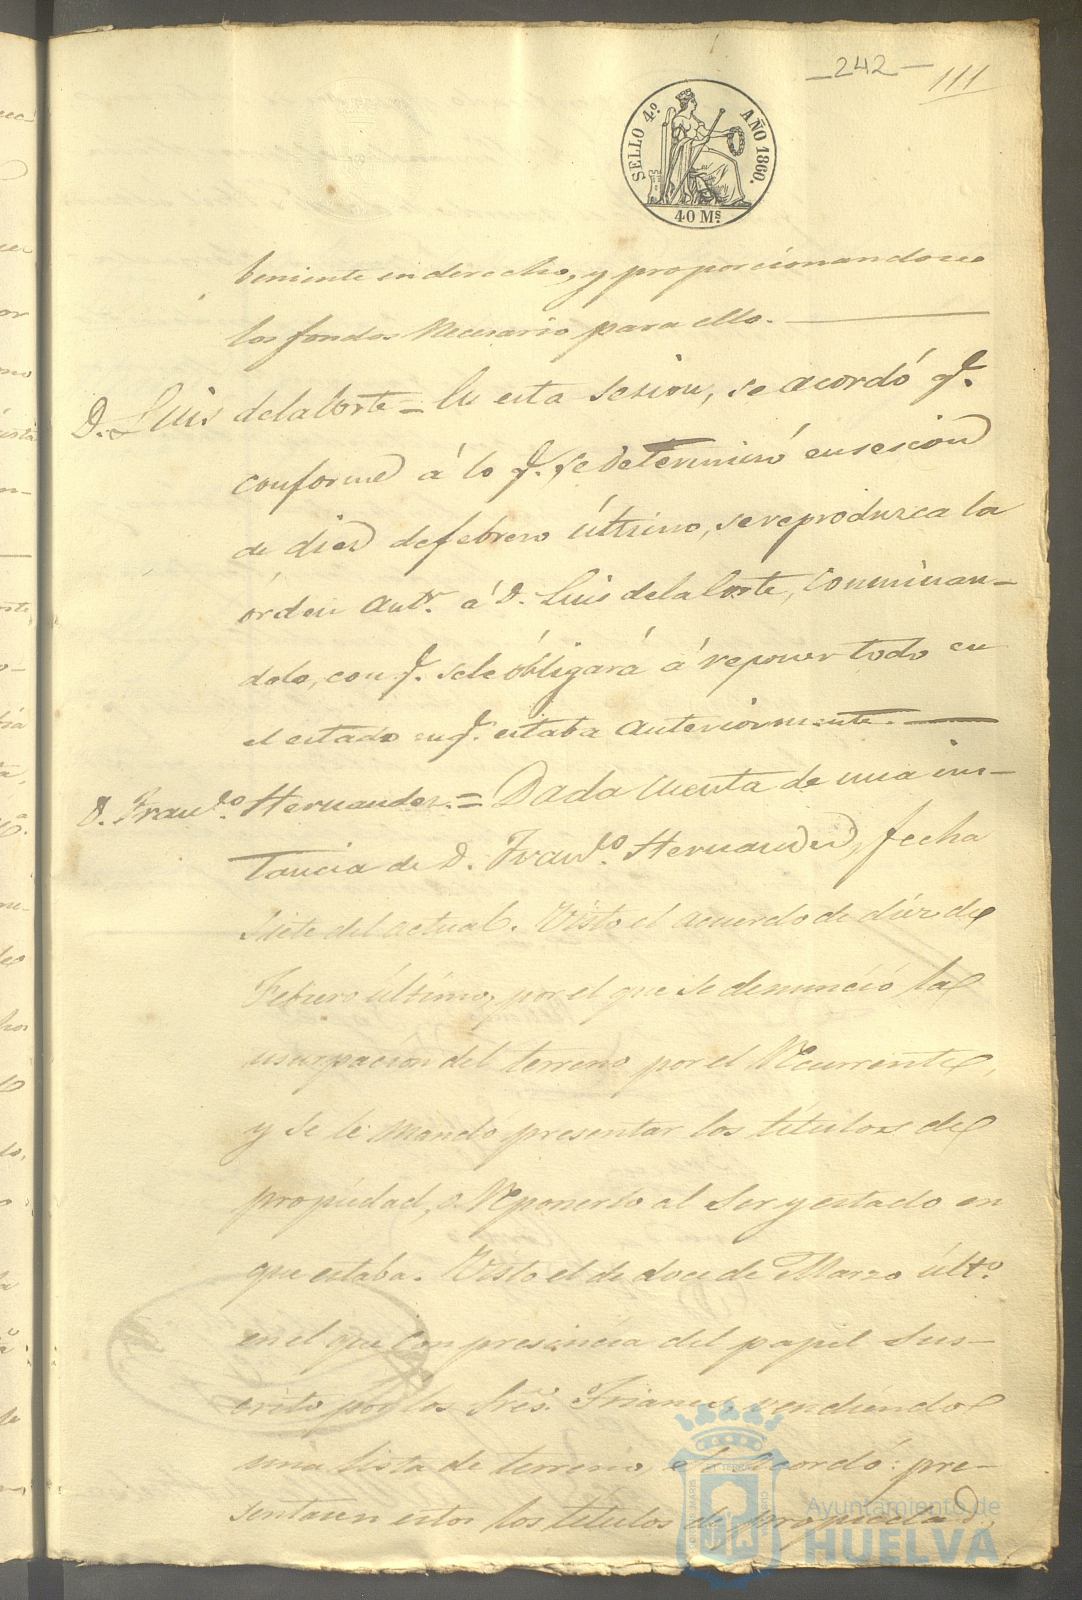 242
111
SELLO 4º AÑO 1860.
40 Ms.
beniente en derecho, y proporcionandose
los fondos necesario para ello.
D. Luis de la Corte = En esta sesion, se acordó q.e
conforme á lo q.e se determinó en sesion
de diez de febrero último, se reproduzca la
órden ant.r á D. Luis de la Corte, conminan-
dolo, con q.e se le óbligará á reponer todo en
el estado en q.e estaba anteriormente.
D. Fran.co Hernandez. = Dada cuenta de una ins-
tancia de D. Fran.co Hernandez, fecha
siete del actual. Visto el acuerdo de diez de
Febrero último, por el que se denunció la
usurpacion del terreno por el Recurrente,
y se le mandó presentar los títulos de
propiedad, o Reponerlo al ser y estado en
que estaba. Visto el de doce de Marzo últº.
en el que con presencia del papel sus-
crito por los Sres. Trianes, vendiendo
una lista de terreno, se acordó: pre-
sentasen estos los titulos de propiedad,
Ayuntamiento de
HUELVA